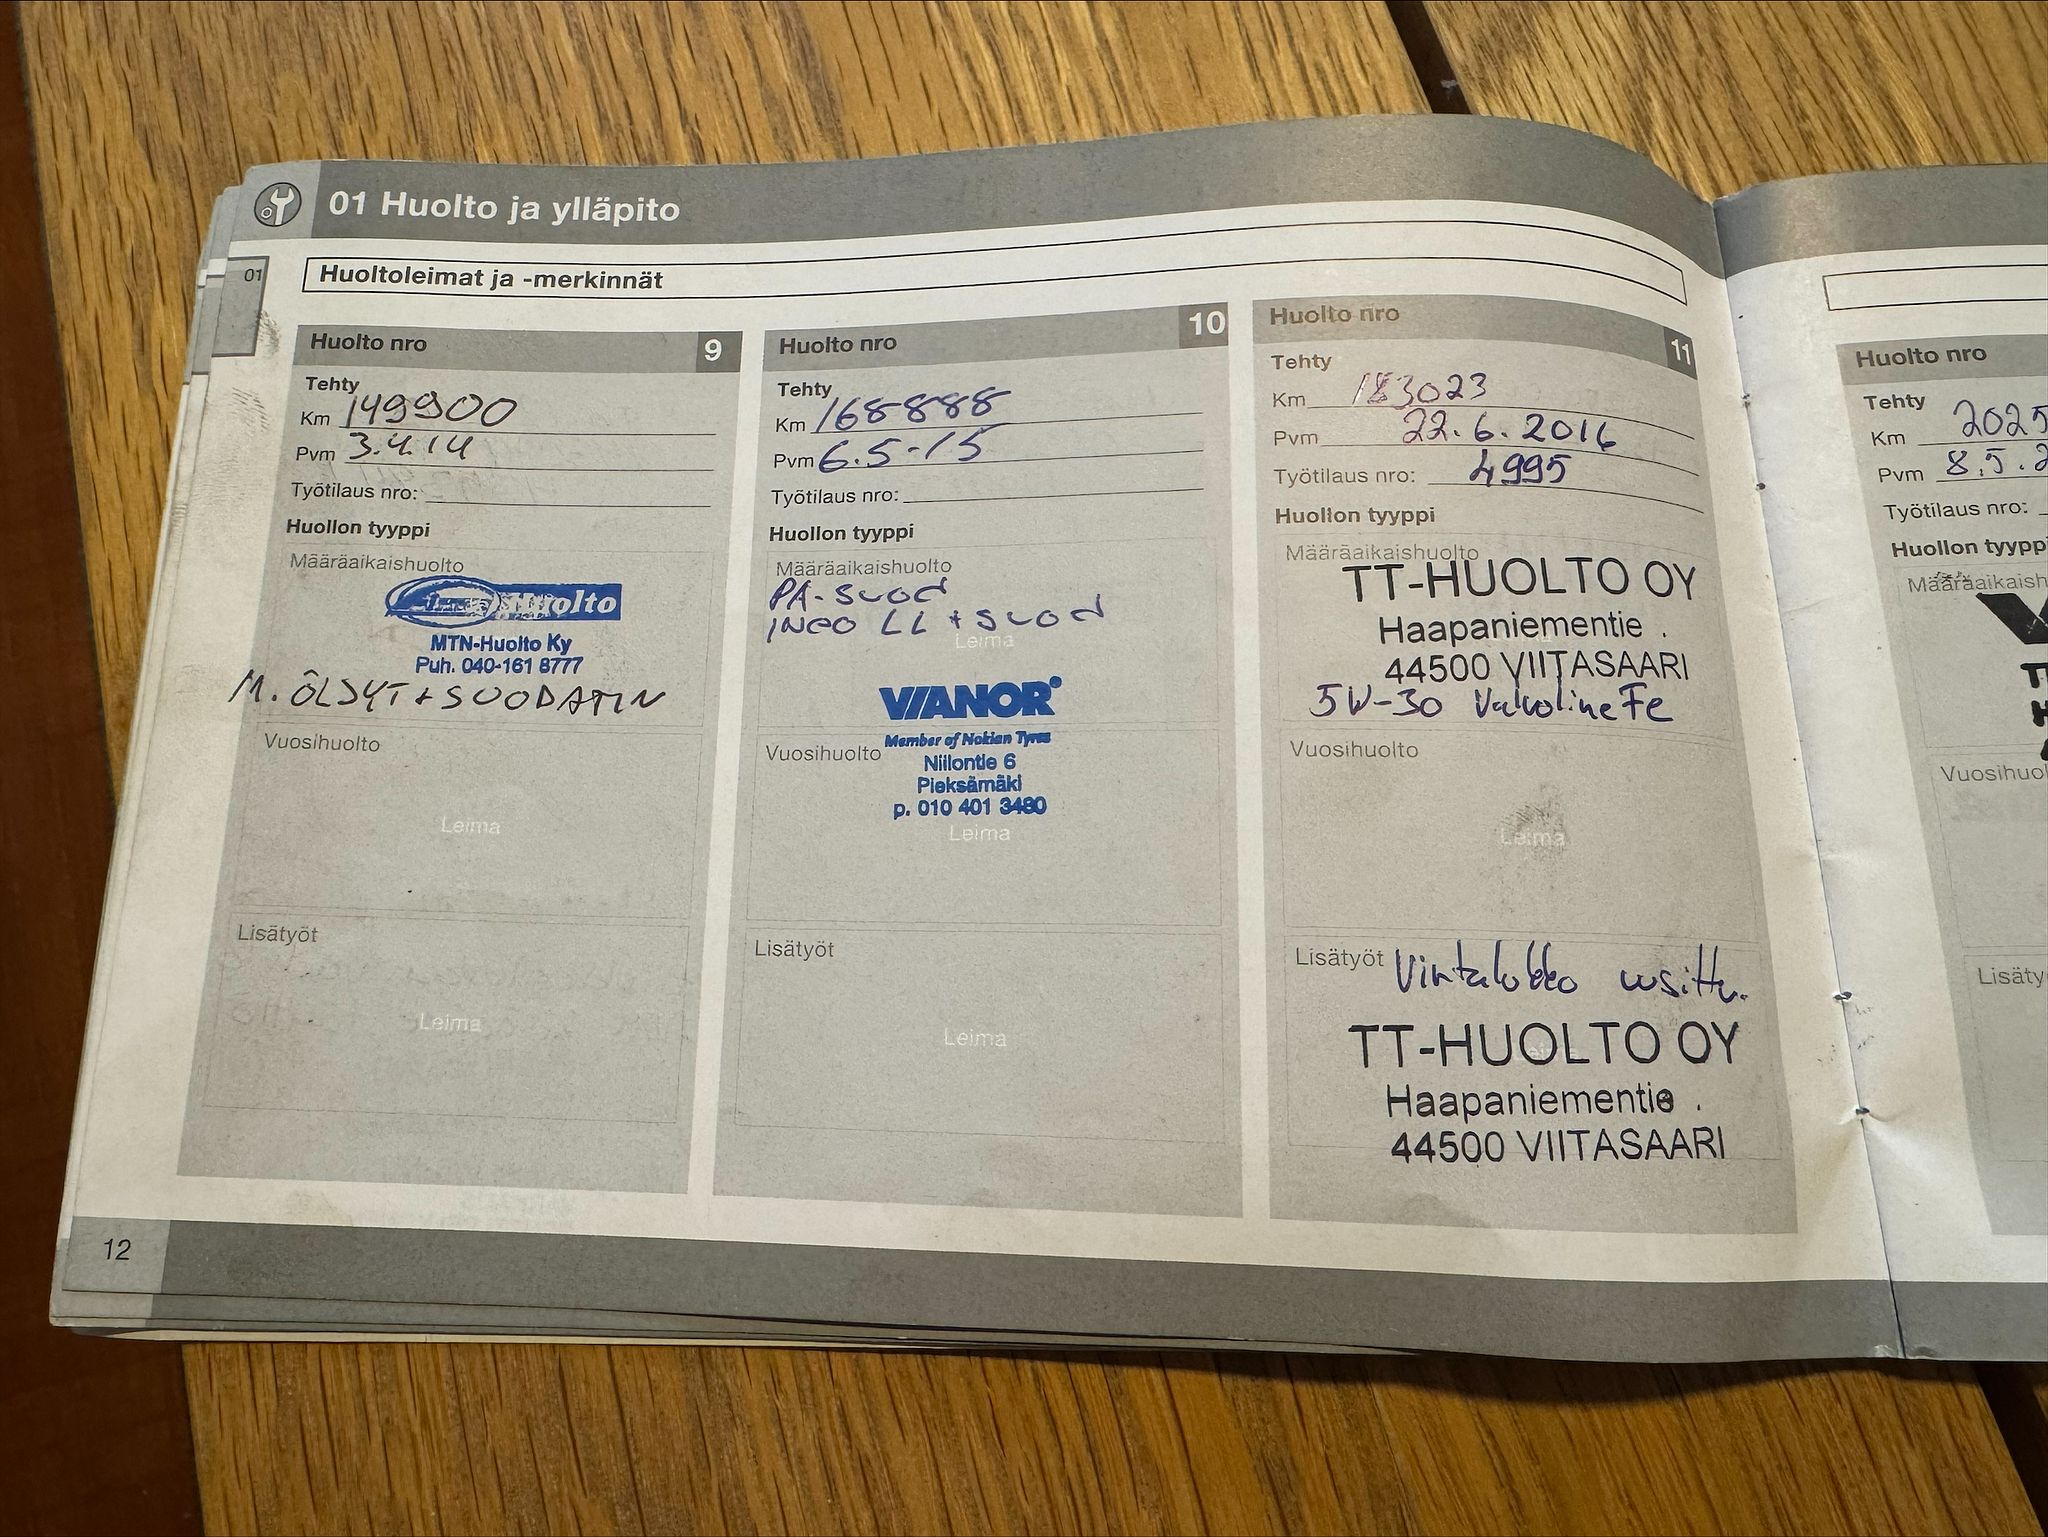 01 Huolto ja ylläpito
01
Huoltoleimat ja -merkinnät
Huolto nro 9
Tehty
Km 149900
Pvm 3.4.14
Työtilaus nro:
Huollon tyyppi
Määräaikaishuolto
Huolto
MTN-Huolto Ky
Puh. 040-161 8777
M. ÖLJYT + SUODATIN
Vuosihuolto
Leima
Lisätyöt
Leima
12
Huolto nro 10
Tehty
Km 168888
Pvm 6.5-15
Työtilaus nro:
Huollon tyyppi
Määräaikaishuolto
PA-SUOD
INEO LL + SUOD
Leima
VIANOR
Member of Nokian Tyres
Vuosihuolto
Niilontie 6
Pieksämäki
p. 010 401 3480
Leima
Lisätyöt
Leima
Huolto nro 11
Tehty
Km 183023
Pvm 22.6.2016
Työtilaus nro: 4995
Huollon tyyppi
Määräaikaishuolto
TT-HUOLTO OY
Haapaniementie .
44500 VIITASAARI
5W-30 Valvoline Fe
Vuosihuolto
Leima
Lisätyöt Virtalukko uusittu.
TT-HUOLTO OY
Haapaniementie .
44500 VIITASAARI
Huolto nro
Tehty
Km 2025
Pvm 8.5.2
Työtilaus nro:
Huollon tyyppi
Määräaikaish
Vuosihuol
Lisäty